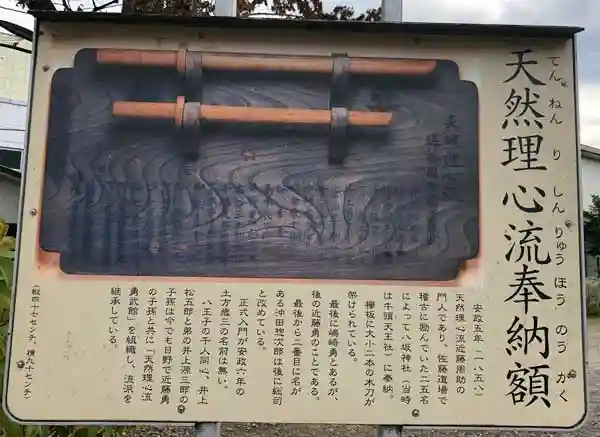 天然理心流奉納額
てんねんりしんりゅうほうのうがく
安政五年(一八五八)
天然理心流近藤周助の
門人であり、佐藤道場で
稽古に励んでいた二五名
によって八坂神社(当時
は牛頭天王社)に奉納。
欅板に大小二本の木刀が
架けられている。
最後に嶋崎勇とあるが、
後の近藤勇のことである。
最後から二番目に名が
ある沖田惣次郎は後に総司
と改めている。
正式入門が安政六年の
土方歳三の名前は無い。
八王子の千人同心、井上
松五郎と弟の井上源三郎の
子孫は今でも日野で近藤勇
の子孫と共に「天然理心流
勇武館」を組織し、流派を
継承している。
(縦四十七センチ、横九十センチ)